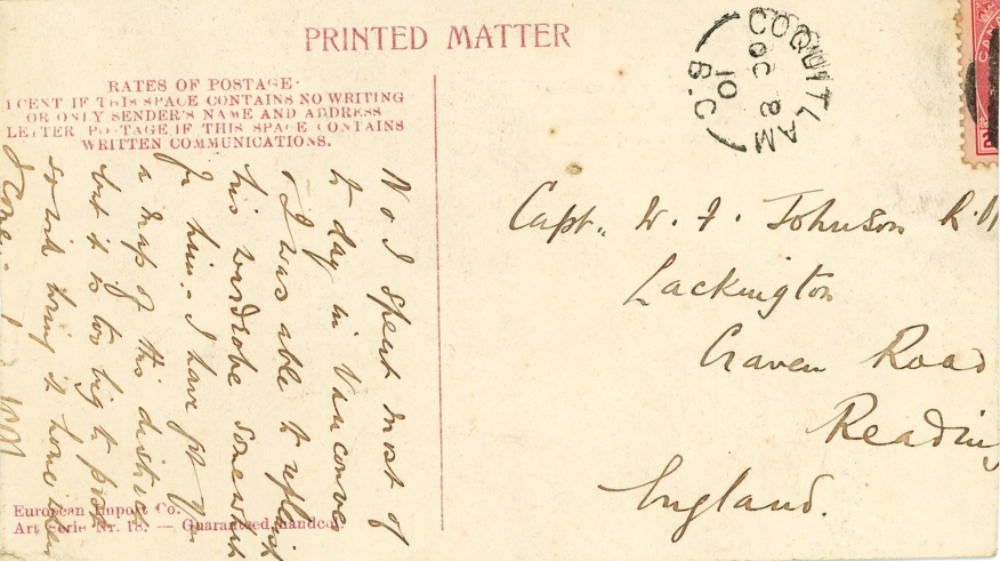 PRINTED MATTER
RATES OF POSTAGE.
1 CENT IF THIS SPACE CONTAINS NO WRITING
OR ONLY SENDER'S NAME AND ADDRESS
LETTER POSTAGE IF THIS SPACE CONTAINS
WRITTEN COMMUNICATIONS.
COQUITLAM
OC 8
10
B.C
CANA
Capt. W. F. Johnson R.
Lackington
Craven Road
Readin
England.
No 2 Spent most of
to day in Vancouver
& I was able to replenish
his wardrobe somewhat
for him. I have got
a map of this district
but it is too big to post
so will bring it home
European Import Co.
Art Serie Nr. 18. — Guaranteed handcol